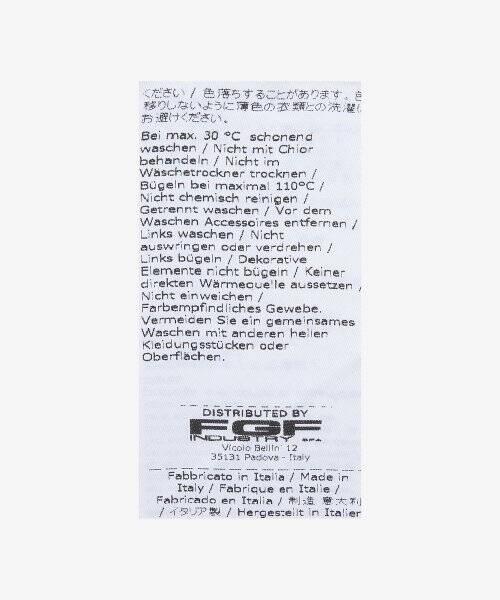 ください / 色落ちすることがあります。色
移りしないように薄色の衣類との洗濯は
お避けください。
Bei max. 30 °C schonend
waschen / Nicht mit Chlor
behandeln / Nicht im
Wäschetrockner trocknen /
Bügeln bei maximal 110°C /
Nicht chemisch reinigen /
Getrennt waschen / Vor dem
Waschen Accessoires entfernen /
Links waschen / Nicht
auswringen oder verdrehen /
Links bügeln / Dekorative
Elemente nicht bügeln / Keiner
direkten Wärmequelle aussetzen /
Nicht einweichen /
Farbempfindliches Gewebe.
Vermeiden Sie ein gemeinsames
Waschen mit anderen hellen
Kleidungsstücken oder
Oberflächen.
DISTRIBUTED BY
FGF
INDUSTRY s.r.l.
Vicolo Bellin' 12
35131 Padova - Italy
Fabbricato in Italia / Made in
Italy / Fabrique en Italie /
Fabricado en Italia / 制造 意大利
/ イタリア製 / Hergestellt in Italien